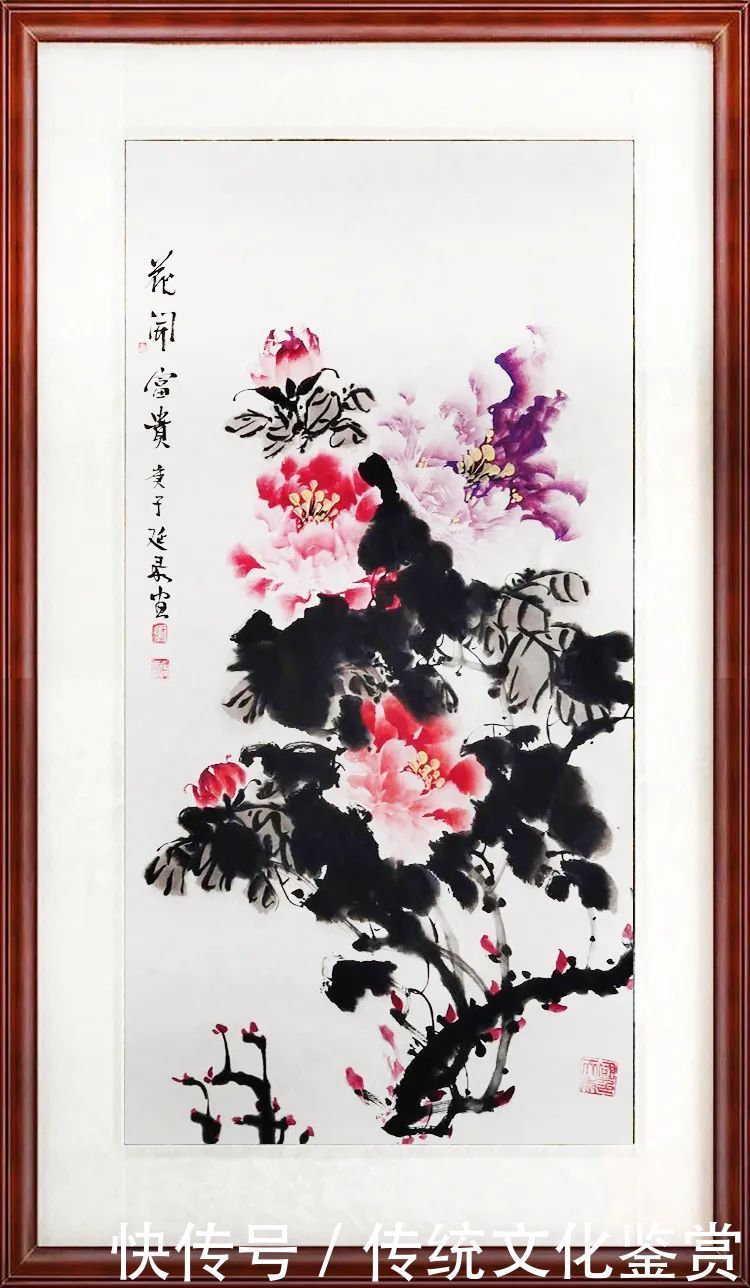 花開富貴 庚子延录画
快传号 / 传统文化鉴赏